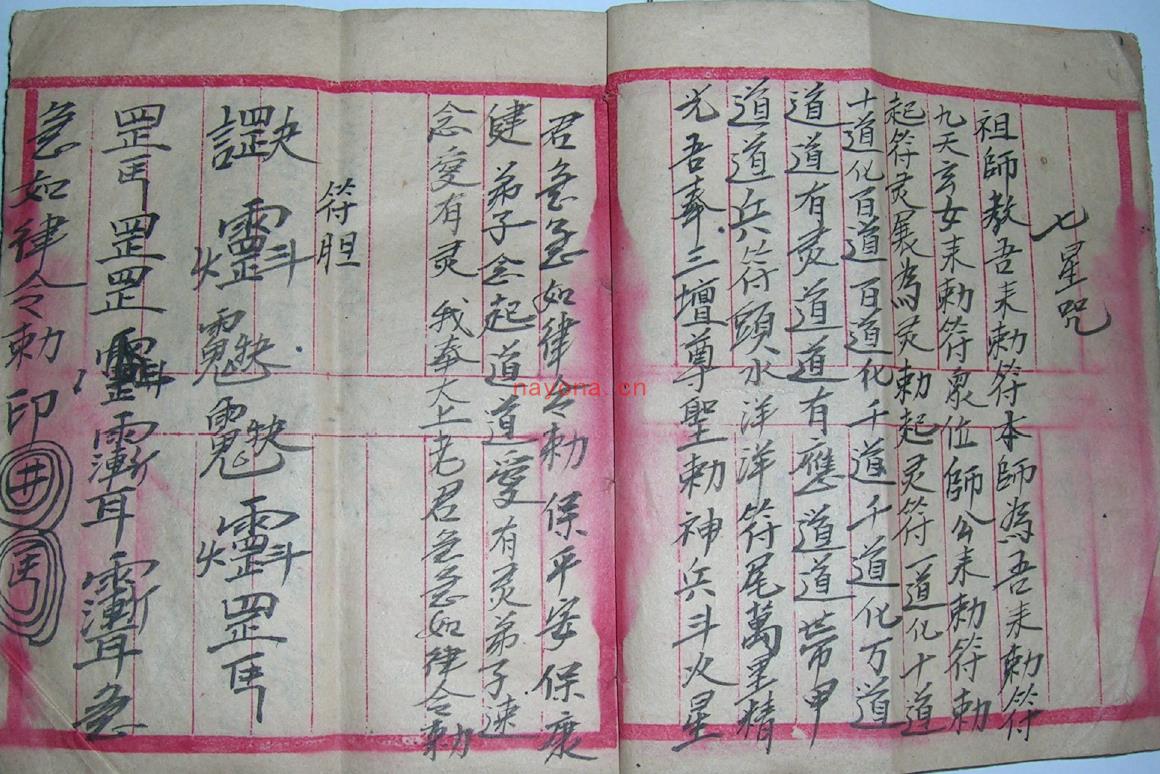 七星咒
祖師教吾来勅符本師為吾来勅符
九天玄女来勅符衆位師公来勅符勅
起符灵展為灵勅起灵符一道化十道
十道化百道百道化千道千道化万道
道道有灵道道有應道道帶甲
道道兵符頭水洋洋符尾萬里精
光吾奉三壇尊聖勅神兵斗火星
君急急如律令勅保平安保康
健弟子念起道道爱有灵弟子速
念爱有灵我奉太上老君急急如律令勅
符胆
罡
罡
急
急如律令勅印
nayona.cn